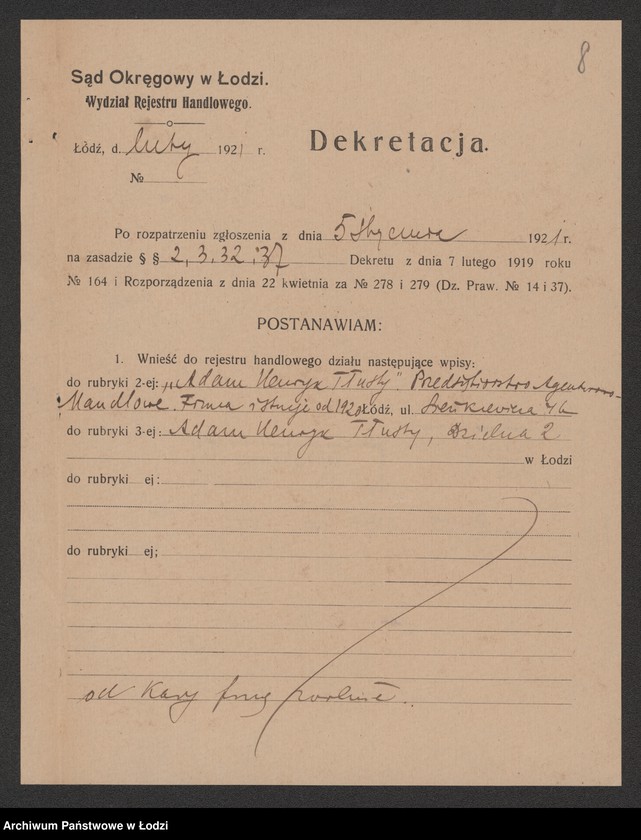 8
Sąd Okręgowy w Łodzi.
Wydział Rejestru Handlowego.
Łódź, d. luty 1921 r.
№
Dekretacja.
Po rozpatrzeniu zgłoszenia z dnia 5 stycznia 1921 r.
na zasadzie § § 2, 3, 32, 37 Dekretu z dnia 7 lutego 1919 roku
№ 164 i Rozporządzenia z dnia 22 kwietnia za № 278 i 279 (Dz. Praw. № 14 i 37).
POSTANAWIAM:
1. Wnieść do rejestru handlowego działu następujące wpisy:
do rubryki 2-ej: „Adam Henryk Tłusty". Przedsiębiorstwo Agenturowo-
Handlowe. Firma istnieje od 1920 Łódź, ul. Sienkiewicza
do rubryki 3-ej: Adam Henryk Tłusty, Dzielna 2
w Łodzi
do rubryki ej:
do rubryki ej;
od kary firmę zwolnić.
Archiwum Państwowe w Łodzi